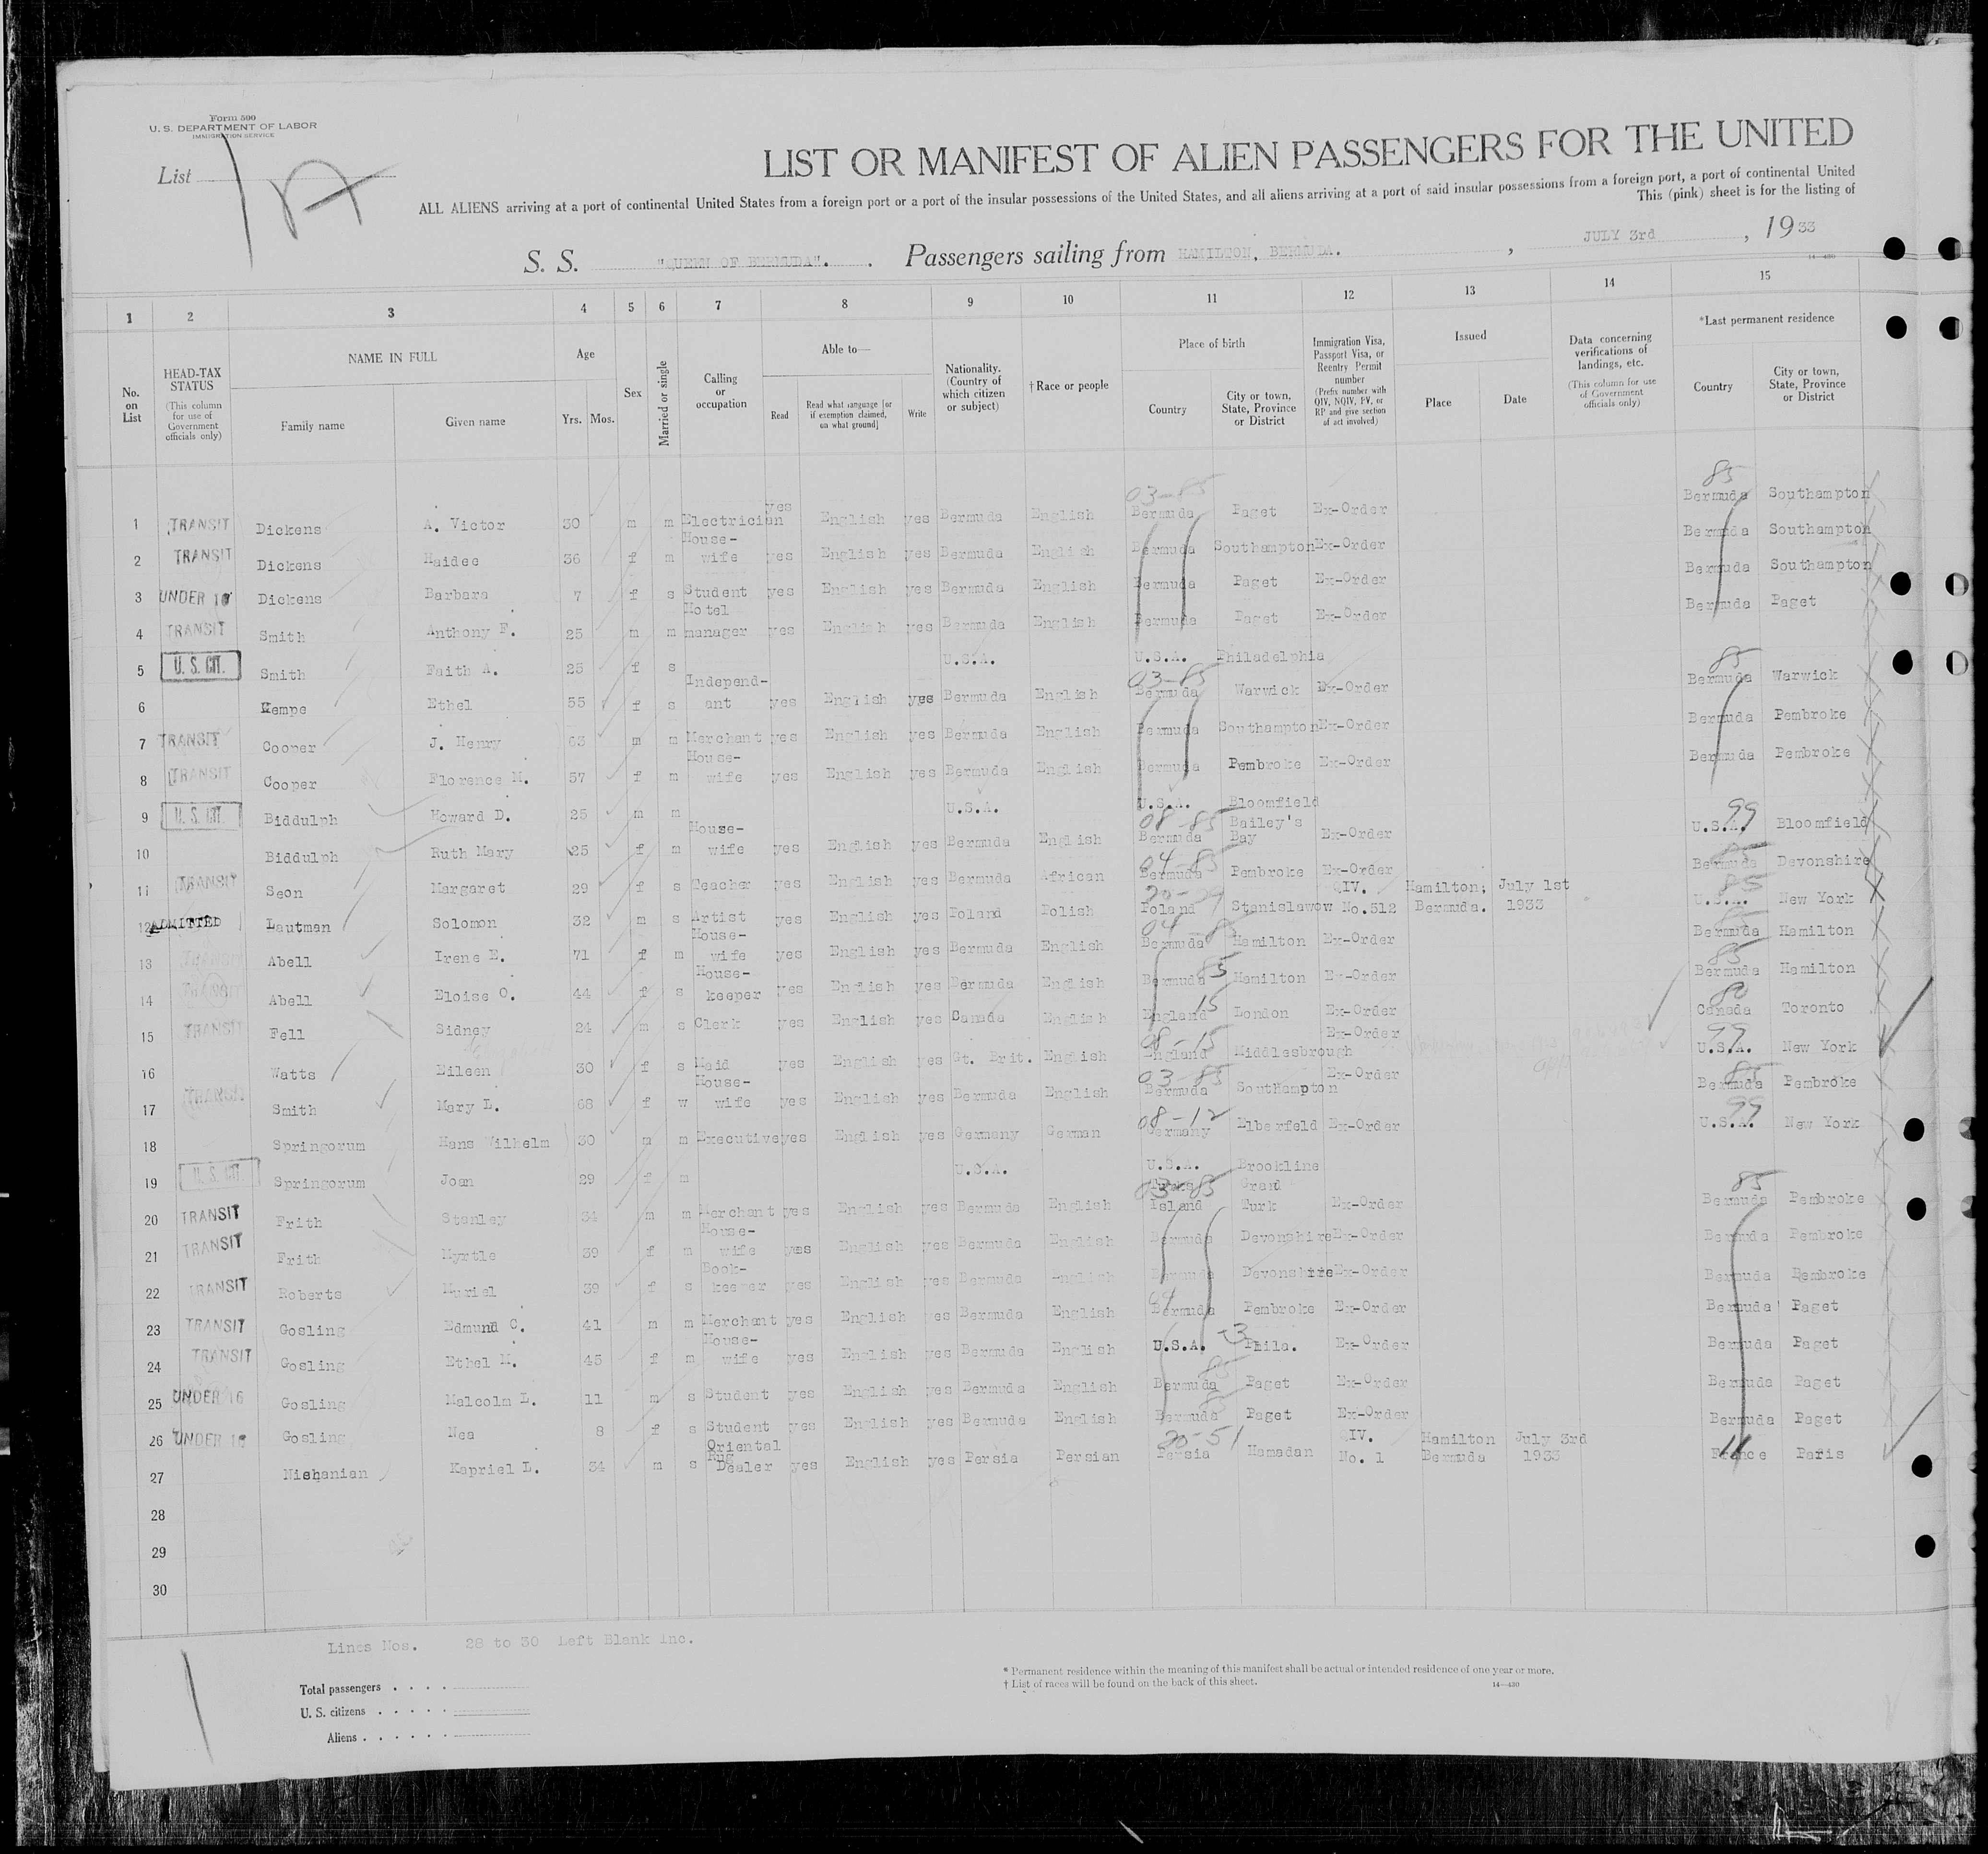 Form 500
U. S. DEPARTMENT OF LABOR
IMMIGRATION SERVICE
List 1A
LIST OR MANIFEST OF ALIEN PASSENGERS FOR THE UNITED
ALL ALIENS arriving at a port of continental United States from a foreign port or a port of the insular possessions of the United States, and all aliens arriving at a port of said insular possessions from a foreign port, a port of continental United
This (pink) sheet is for the listing of
S. S. "QUEEN OF BERMUDA". Passengers sailing from HAMILTON, BERMUDA. , JULY 3rd , 1933
14—430
1 2 3 4 5 6 7 8 9 10 11 12 13 14 15
No. on List
HEAD-TAX STATUS (This column for use of Government officials only)
NAME IN FULL Family name Given name
Age Yrs. Mos.
Sex
Married or single
Calling or occupation
Able to— Read Read what language [or if exemption claimed, on what ground] Write
Nationality. (Country of which citizen or subject)
† Race or people
Place of birth Country City or town, State, Province or District
Immigration Visa, Passport Visa, or Reentry Permit number (Prefix number with QIV, NQIV, PV, or RP and give section of act involved)
Issued Place Date
Data concerning verifications of landings, etc. (This column for use of Government officials only)
*Last permanent residence Country City or town, State, Province or District
1 TRANSIT Dickens A. Victor 30 m m Electrician yes English yes Bermuda English 03-85 Bermuda Paget Ex-Order 85 Bermuda Southampton
2 TRANSIT Dickens Haidee 36 f m House-wife yes English yes Bermuda English Bermuda Southampton Ex-Order Bermuda Southampton
3 UNDER 16 Dickens Barbara 7 f s Student yes English yes Bermuda English Bermuda Paget Ex-Order Bermuda Southampton
4 TRANSIT Smith Anthony F. 25 m m Hotel manager yes English yes Bermuda English Bermuda Paget Ex-Order Bermuda Paget
5 U. S. CIT. Smith Faith A. 25 f s U.S.A. U.S.A. Philadelphia
6 Kempe Ethel 55 f s Independ-ant yes English yes Bermuda English 03-85 Bermuda Warwick Ex-Order 85 Bermuda Warwick
7 TRANSIT Cooper J. Henry 63 m m Merchant yes English yes Bermuda English Bermuda Southampton Ex-Order Bermuda Pembroke
8 TRANSIT Cooper Florence M. 57 f m House-wife yes English yes Bermuda English Bermuda Pembroke Ex-Order Bermuda Pembroke
9 U. S. CIT. Biddulph Howard D. 25 m m U.S.A. U.S.A. Bloomfield
10 Biddulph Ruth Mary 25 f m House-wife yes English yes Bermuda English 08-85 Bermuda Bailey's Bay Ex-Order 99 U.S.A. Bloomfield
11 TRANSIT Seon Margaret 29 f s Teacher yes English yes Bermuda African 04-85 Bermuda Pembroke Ex-Order 85 Bermuda Devonshire
12 ADMITTED Lautman Solomon 32 m s Artist yes English yes Poland Polish Poland Stanislawow QIV. No. 512 Hamilton, Bermuda. July 1st 1933 U.S.A. New York
13 TRANSIT Abell Irene E. 71 f m House-wife yes English yes Bermuda English Bermuda Hamilton Ex-Order Bermuda Hamilton
14 TRANSIT Abell Eloise O. 44 f s House-keeper yes English yes Bermuda English 85 Bermuda Hamilton Ex-Order 85 Bermuda Hamilton
15 TRANSIT Fell Sidney 24 m s Clerk yes English yes Canada English 15 England London Ex-Order 80 Canada Toronto
16 Watts Eileen 30 f s Maid yes English yes Gt. Brit. English 08-15 England Middlesbrough Ex-Order 99 U.S.A. New York
17 TRANSIT Smith Mary L. 68 f w House-wife yes English yes Bermuda English 03-85 Bermuda Southampton Ex-Order 85 Bermuda Pembroke
18 Springorum Hans Wilhelm 30 m m Executive yes English yes Germany German 08-12 Germany Elberfeld Ex-Order 99 U.S.A. New York
19 U. S. CIT. Springorum Joan 29 f m U.S.A. U.S.A. Brookline
20 TRANSIT Frith Stanley 34 m m Merchant yes English yes Bermuda English 03-85 Turks Island Grand Turk Ex-Order 85 Bermuda Pembroke
21 TRANSIT Frith Myrtle 39 f m House-wife yes English yes Bermuda English Bermuda Devonshire Ex-Order Bermuda Pembroke
22 TRANSIT Roberts Muriel 39 f s Book-keeper yes English yes Bermuda English Bermuda Devonshire Ex-Order Bermuda Pembroke
23 TRANSIT Gosling Edmund C. 41 m m Merchant yes English yes Bermuda English 04 Bermuda Pembroke Ex-Order Bermuda Paget
24 TRANSIT Gosling Ethel M. 45 f m House-wife yes English yes Bermuda English U.S.A. Phila. Ex-Order Bermuda Paget
25 UNDER 16 Gosling Malcolm L. 11 m s Student yes English yes Bermuda English 85 Bermuda Paget Ex-Order Bermuda Paget
26 UNDER 16 Gosling Nea 8 f s Student yes English yes Bermuda English Bermuda Paget Ex-Order Bermuda Paget
27 Nishanian Kapriel L. 34 m s Oriental Rug Dealer yes English yes Persia Persian 20-51 Persia Hamadan QIV. No. 1 Hamilton Bermuda July 3rd 1933 11 France Paris
28
29
30
Lines Nos. 28 to 30 Left Blank Inc.
Total passengers . . . .
U. S. citizens . . . . .
Aliens . . . . . .
* Permanent residence within the meaning of this manifest shall be actual or intended residence of one year or more.
† List of races will be found on the back of this sheet.
14—430